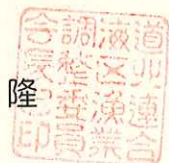 隆
道北連合
海区漁業
調整委員
会長之印